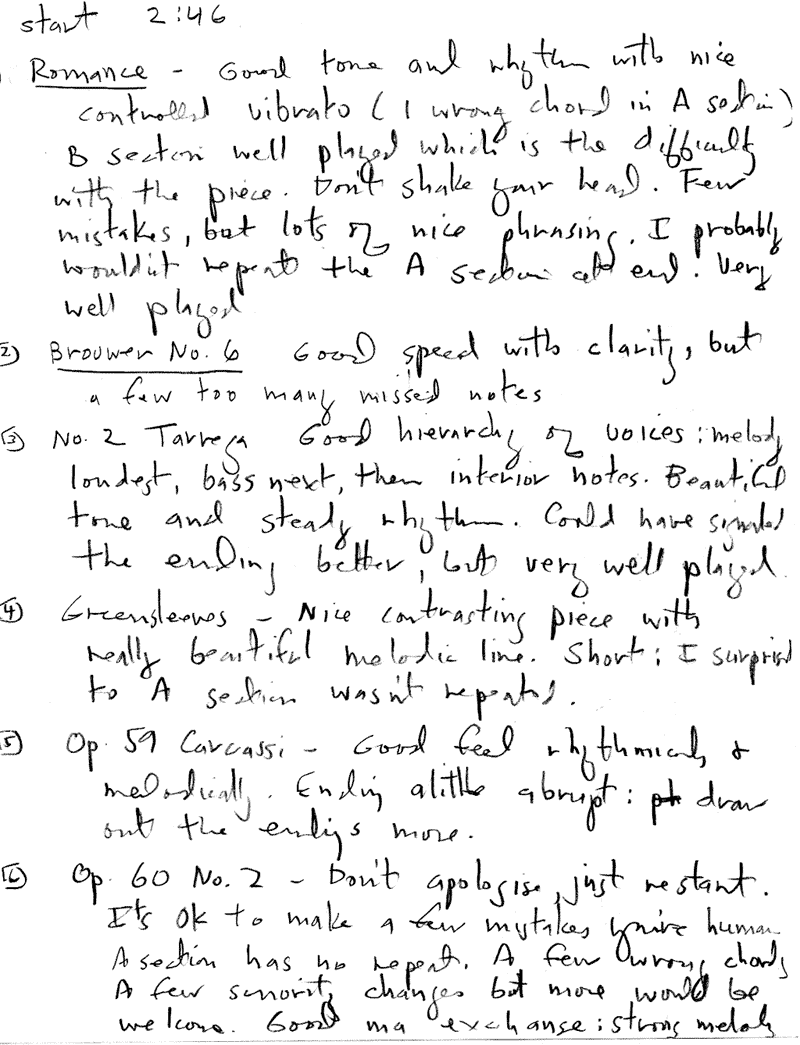 start 2:46
Romance - Good tone and rhythm with nice
controlled vibrato (1 wrong chord in A section)
B section well played which is the difficulty
with the piece. Don't shake your head. Few
mistakes, but lots of nice phrasing. I probably
wouldn't repeat the A section at end. Very
well played
② Brouwer No. 6 Good speed with clarity, but
a few too many missed notes
③ No. 2 Tarrega Good hierarchy of voices: melody
loudest, bass next, then interior notes. Beautiful
tone and steady rhythm. Could have signaled
the ending better, but very well played.
④ Greensleeves - Nice contrasting piece with
really beautiful melodic line. Short: I surprised
to A section wasn't repeated.
⑤ Op. 59 Carcassi - Good feel rhythmically &
melodically. Ending a little abrupt: draw
out the endings more.
⑥ Op. 60 No. 2 - Don't apologise, just restart.
It's OK to make a few mistakes you're human
A section has no repeat. A few wrong chords
A few sonority changes but more would be
welcome. Good ma exchange: strong melody